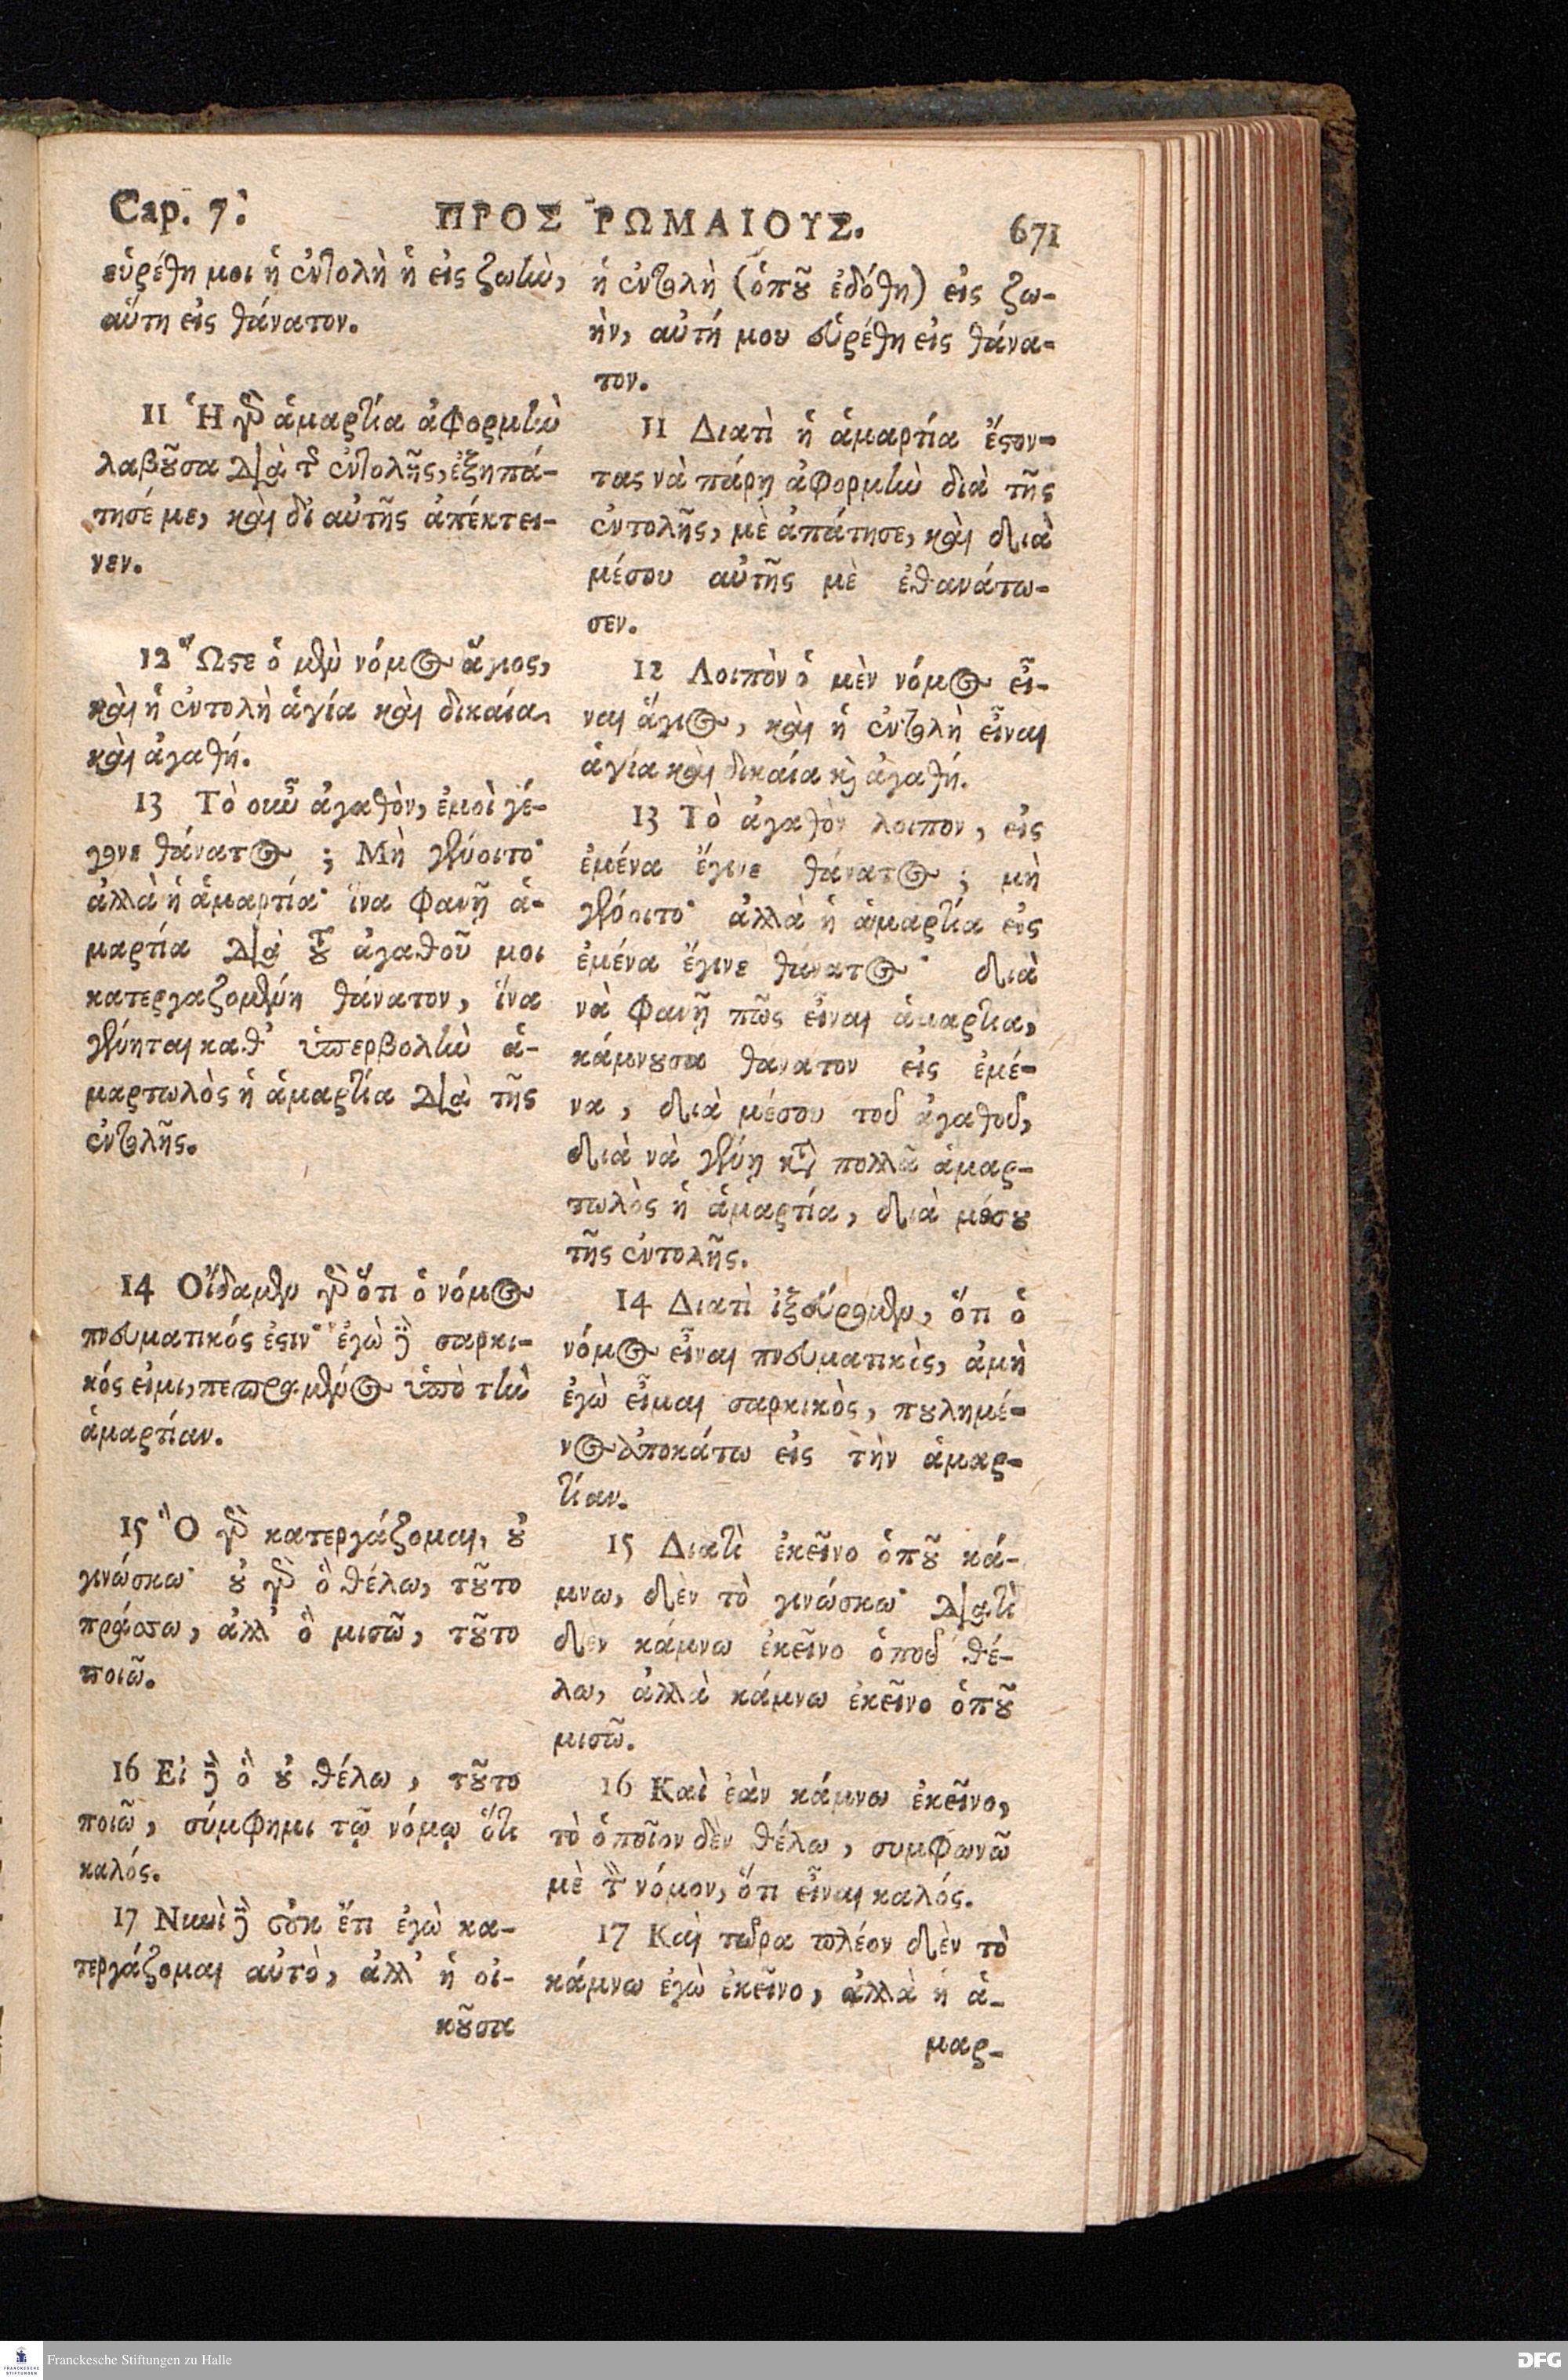 Cap. 7.
ΠΡΟΣ ῬΩΜΑΙΟΥΣ.
671
εὑρέθη μοι ἡ ἐντολὴ ἡ εἰς ζωὴν,
αὕτη εἰς θάνατον.
11 Ἡ γὰρ ἁμαρτία ἀφορμὴν
λαβοῦσα διὰ τῆς ἐντολῆς, ἐξηπά-
τησέ με, καὶ δι' αὐτῆς ἀπέκτει-
νεν.
12 Ὥστε ὁ μὲν νόμος ἅγιος,
καὶ ἡ ἐντολὴ ἁγία καὶ δικαία
καὶ ἀγαθή.
13 Τὸ οὖν ἀγαθὸν, ἐμοὶ γέ-
γονε θάνατος ; Μὴ γένοιτο·
ἀλλὰ ἡ ἁμαρτία· ἵνα φανῇ ἁ-
μαρτία διὰ τοῦ ἀγαθοῦ μοι
κατεργαζομένη θάνατον, ἵνα
γένηται καθ' ὑπερβολὴν ἁ-
μαρτωλὸς ἡ ἁμαρτία διὰ τῆς
ἐντολῆς.
14 Οἴδαμεν γὰρ ὅτι ὁ νόμος
πνευματικός ἐστιν· ἐγὼ δὲ σαρκι-
κός εἰμι, πεπραμένος ὑπὸ τὴν
ἁμαρτίαν.
15 Ὃ γὰρ κατεργάζομαι, οὐ
γινώσκω· οὐ γὰρ ὃ θέλω, τοῦτο
πράσσω, ἀλλ' ὃ μισῶ, τοῦτο
ποιῶ.
16 Εἰ δὲ ὃ οὐ θέλω, τοῦτο
ποιῶ, σύμφημι τῷ νόμῳ ὅτι
καλός.
17 Νυνὶ δὲ οὐκ ἔτι ἐγὼ κα-
τεργάζομαι αὐτὸ, ἀλλ' ἡ οἰ-
κοῦσα
ἡ ἐντολὴ (ὁποῦ ἐδόθη) εἰς ζω-
ὴν, αὐτή μου εὑρέθη εἰς θάνα-
τον.
11 Διατὶ ἡ ἁμαρτία ἔστον-
τας νὰ πάρῃ ἀφορμὴν διὰ τῆς
ἐντολῆς, μὲ ἀπάτησε, καὶ διὰ
μέσου αὐτῆς μὲ ἐθανάτω-
σεν.
12 Λοιπὸν ὁ μὲν νόμος εἶ-
ναι ἅγιος, καὶ ἡ ἐντολὴ εἶναι
ἁγία καὶ δικαία καὶ ἀγαθή.
13 Τὸ ἀγαθὸν λοιπον, εἰς
ἐμένα ἔγινε θάνατος ; μὴ
γένοιτο· ἀλλὰ ἡ ἁμαρτία εἰς
ἐμένα ἔγινε θάνατος· διὰ
νὰ φανῇ πῶς εἶναι ἁμαρτία,
κάμνουσα θάνατον εἰς ἐμέ-
να, διὰ μέσου τοῦ ἀγαθοῦ,
διὰ νὰ γένῃ κατὰ πολλὰ ἁμαρ-
τωλὸς ἡ ἁμαρτία, διὰ μέσου
τῆς ἐντολῆς.
14 Διατὶ ἰξεύρομεν, ὅτι ὁ
νόμος εἶναι πνευματικὸς, ἀμὴ
ἐγὼ εἶμαι σαρκικὸς, πουλημέ-
νος ἀποκάτω εἰς τὴν ἁμαρ-
τίαν.
15 Διατὶ ἐκεῖνο ὁποῦ κά-
μνω, δὲν τὸ γινώσκω· διατὶ
δὲν κάμνω ἐκεῖνο ὁποῦ θέ-
λω, ἀλλὰ κάμνω ἐκεῖνο ὁποῦ
μισῶ.
16 Καὶ ἐὰν κάμνω ἐκεῖνο,
τὸ ὁποῖον δὲν θέλω, συμφωνῶ
μὲ τὸν νόμον, ὅτι εἶναι καλός.
17 Καὶ τῶρα πλέον δὲν τὸ
κάμνω ἐγὼ ἐκεῖνο, ἀλλὰ ἡ ἁ-
μαρ-
FRANCKESCHE STIFTUNGEN
Franckesche Stiftungen zu Halle
DFG